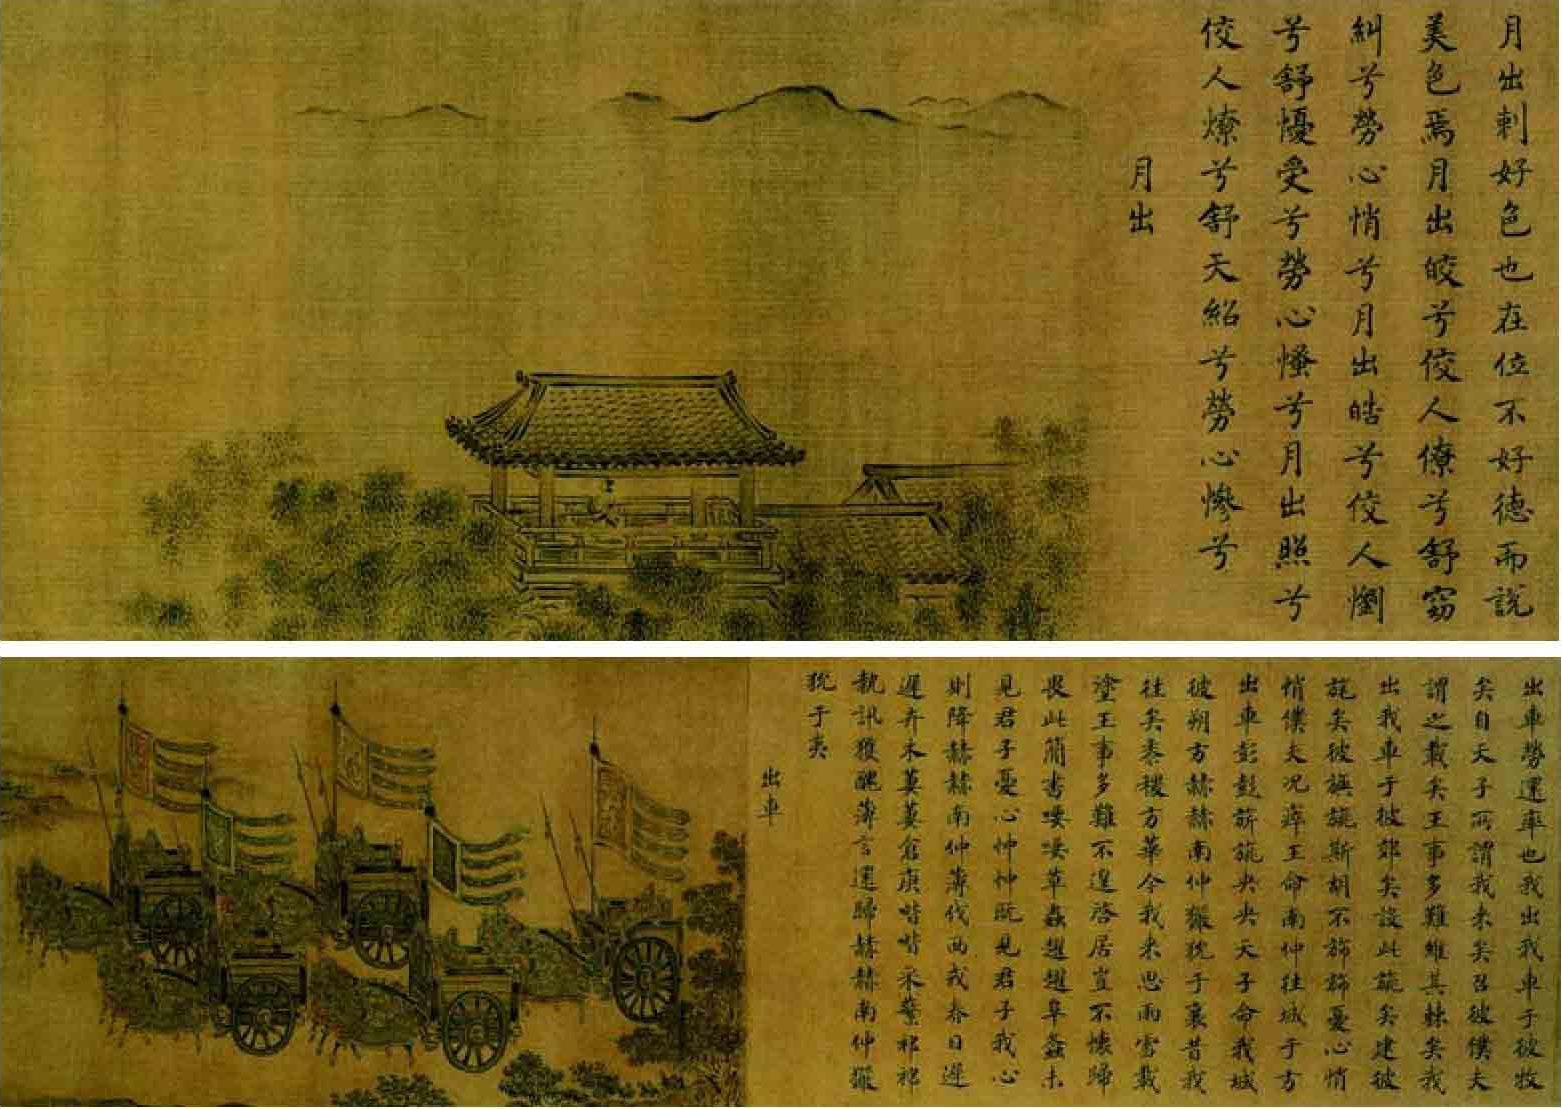 月出刺好色也在位不好德而說
美色焉月出皎兮佼人僚兮舒窈
糾兮勞心悄兮月出皓兮佼人懰
兮舒懮受兮勞心慅兮月出照兮
佼人燎兮舒天紹兮勞心慘兮
月出
出車勞還率也我出我車于彼牧
矣自天子所謂我來矣召彼僕夫
謂之載矣王事多難維其棘矣我
出我車于彼郊矣設此旐矣建彼
旄矣彼旟旐斯胡不旆旆憂心悄
悄僕夫況瘁王命南仲往城于方
出車彭彭旂旐央央天子命我城
彼朔方赫赫南仲玁狁于襄昔我
往矣黍稷方華今我來思雨雪載
塗王事多難不遑啓居豈不懷歸
畏此簡書喓喓草蟲趯趯阜螽未
見君子憂心忡忡既見君子我心
則降赫赫南仲薄伐西戎春日遲
遲卉木萋萋倉庚喈喈采蘩祁祁
執訊獲醜薄言還歸赫赫南仲玁
狁于夷
出車